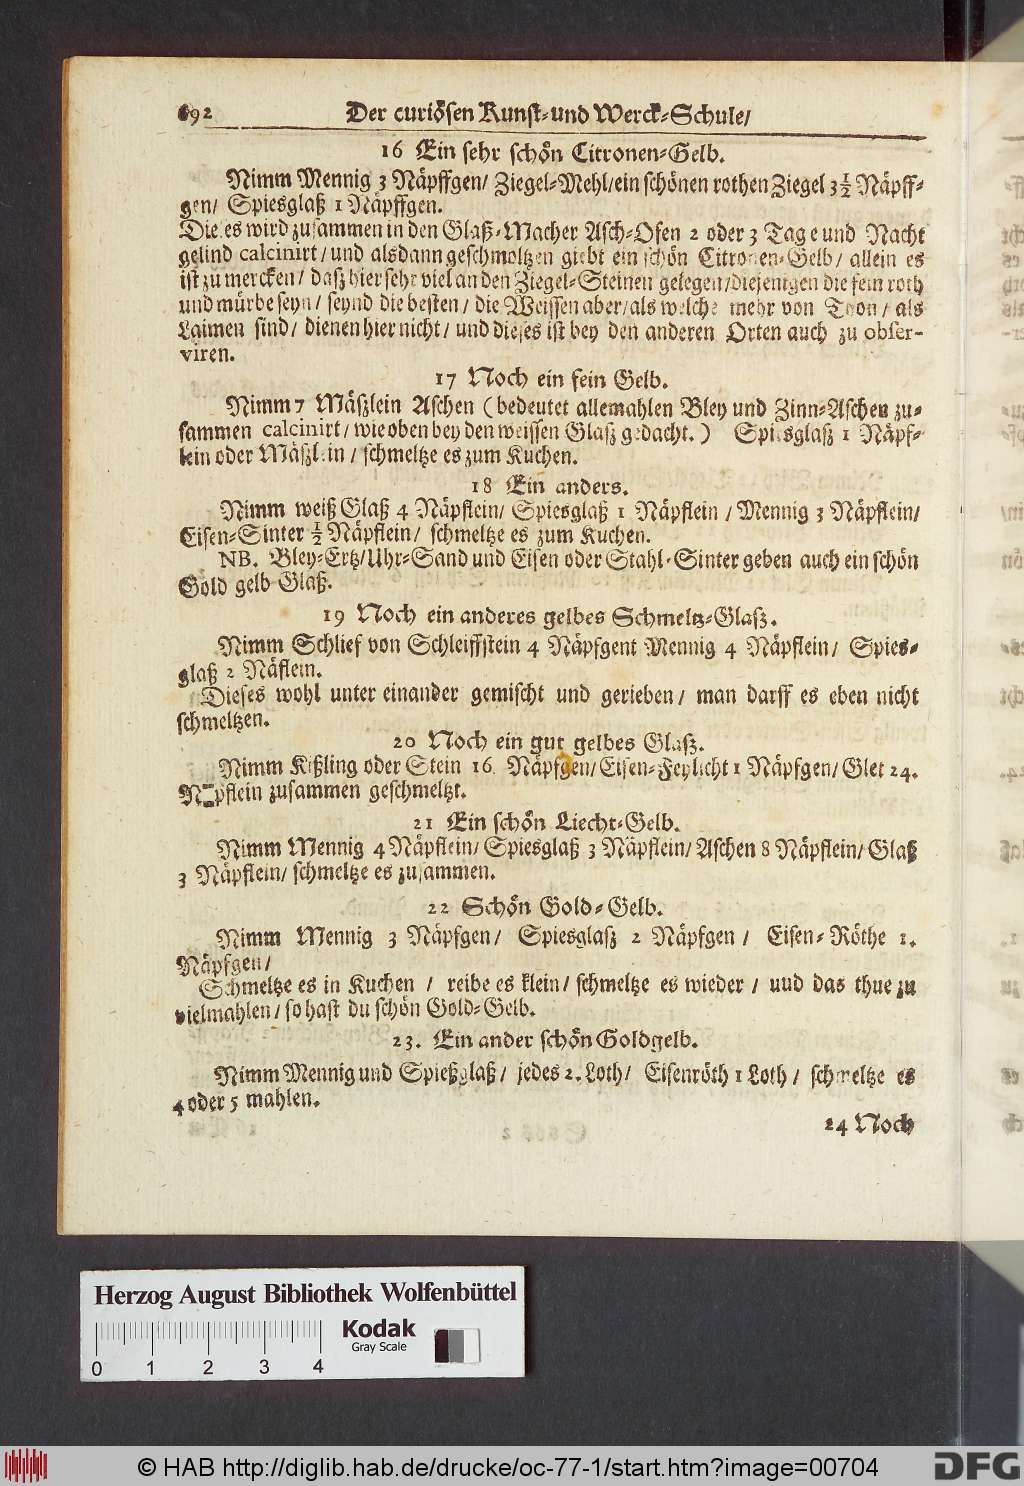 692 Der curiösen Kunst-und Werck-Schule/
16 Ein sehr schön Citronen-Gelb.
Nimm Mennig 3 Näpffgen/ Ziegel-Mehl/ein schönen rothen Ziegel 3½ Näpff-
gen/ Spiesglaß 1 Näpffgen.
Dieses wird zusammen in den Glaß-Macher Asch-Ofen 2 oder 3 Tage und Nacht
gelind calcinirt/ und alsdann geschmoltzen giebt ein schön Citronen-Gelb/ allein es
ist zu mercken/ daß hier sehr viel an den Ziegel-Steinen gelegen/diejenigen die fein roth
und mürbe seyn/ seynd die besten/ die Weissen aber/als welche mehr von Toon/ als
Laimen sind/ dienen hier nicht/ und dieses ist bey den anderen Orten auch zu obser-
viren.
17 Noch ein fein Gelb.
Nimm 7 Mäßlein Aschen (bedeutet allemahlen Bley und Zinn-Aschen zu-
sammen calcinirt/ wie oben bey den weissen Glaß gedacht.) Spiesglaß 1 Näpf-
lein oder Mäßlein/ schmeltze es zum Kuchen.
18 Ein anders.
Nimm weiß Glaß 4 Näpflein/ Spiesglaß 1 Näpflein/ Mennig 3 Näpflein/
Eisen-Sinter ½ Näpflein/ schmeltze es zum Kuchen.
NB. Bley-Ertz/Uhr-Sand und Eisen oder Stahl-Sinter geben auch ein schön
Gold gelb Glaß.
19 Noch ein anderes gelbes Schmeltz-Glaß.
Nimm Schlief von Schleiffstein 4 Näpfgent Mennig 4 Näpflein/ Spies-
glaß 2 Näflein.
Dieses wohl unter einander gemischt und gerieben/ man darff es eben nicht
schmeltzen.
20 Noch ein gut gelbes Glaß.
Nimm Kißling oder Stein 16 Näpfgen/Eisen-Feylicht 1 Näpfgen/ Glet 24.
Näpflein zusammen geschmeltzt.
21 Ein schön Liecht-Gelb.
Nimm Mennig 4 Näpflein/ Spiesglaß 3 Näpflein/ Aschen 8 Näpflein/ Glaß
3 Näpflein/ schmeltze es zusammen.
22 Schön Gold-Gelb.
Nimm Mennig 3 Näpfgen/ Spiesglaß 2 Näpfgen/ Eisen-Röthe 1.
Näpfgen/
Schmeltze es in Kuchen / reibe es klein/ schmeltze es wieder/ uud das thue zu
vielmahlen/ so hast du schön Gold-Gelb.
23. Ein ander schön Goldgelb.
Nimm Mennig und Spießglaß/ jedes 2. Loth/ Eisenröth 1 Loth/ schmeltze es
4 oder 5 mahlen.
24 Noch
Herzog August Bibliothek Wolfenbüttel
Kodak
Gray Scale
0 1 2 3 4
© HAB http://diglib.hab.de/drucke/oc-77-1/start.htm?image=00704
DFG